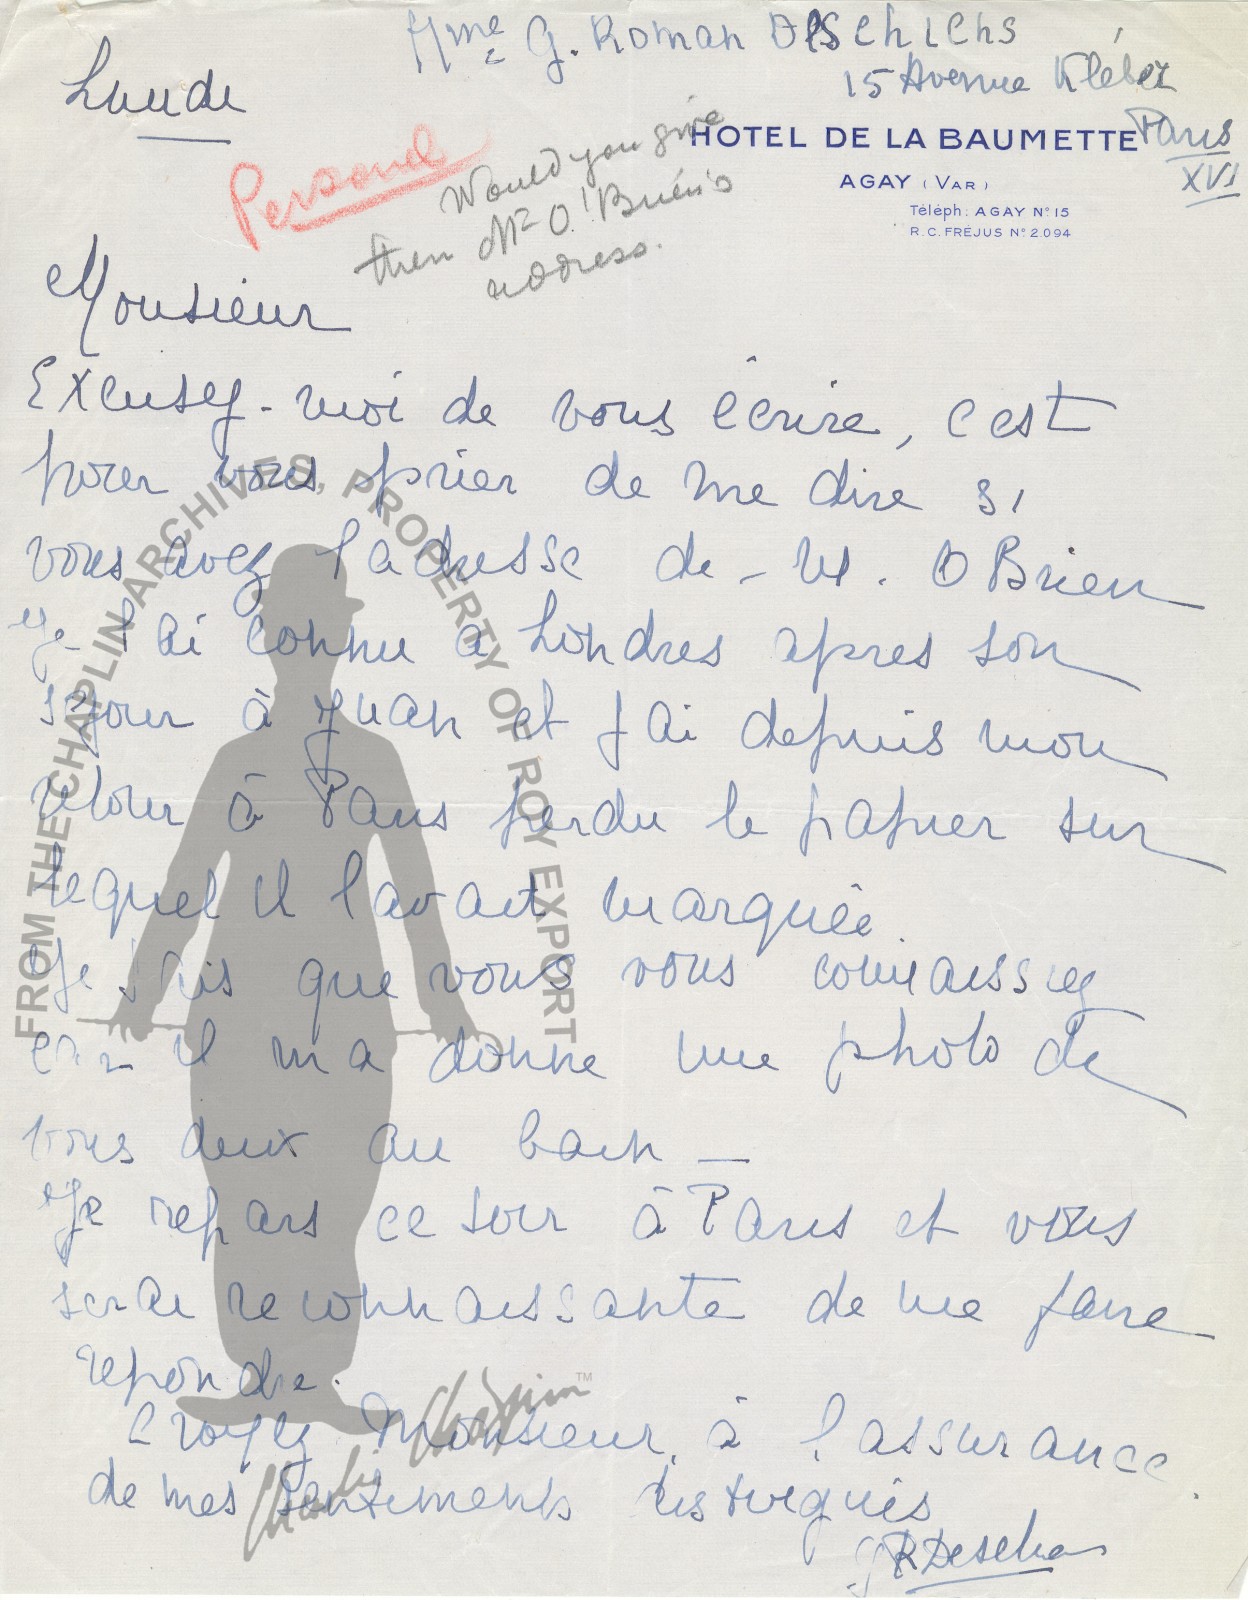 Mme G. Roman Deschiens
15 Avenue Kléber
Paris
XVI
Lundi
HOTEL DE LA BAUMETTE
AGAY (VAR)
Téléph: AGAY Nº 15
R.C. FRÉJUS Nº 2.094
Personel
Would you give
them Mr O'Brien's
address.
Monsieur
Excusez-moi de vous écrire, c est
pour vous prier de me dire si
vous avez l adresse de - M. O Brien
Je l ai connu a Londres apres son
sejour à Juan et j ai depuis mon
retour à Paris perdu le papier sur
lequel il l avait marquée
Je sais que vous vous connaissiez
car il m a donne une photo de
vous deux au bain _
Je repars ce soir à Paris et vous
serai reconnaissante de me faire
repondre.
Croyez Monsieur, à l assurance
de mes sentiments distingués
GRDeschiens
FROM THE CHAPLIN ARCHIVES, PROPERTY OF ROY EXPORT
Charlie Chaplin™